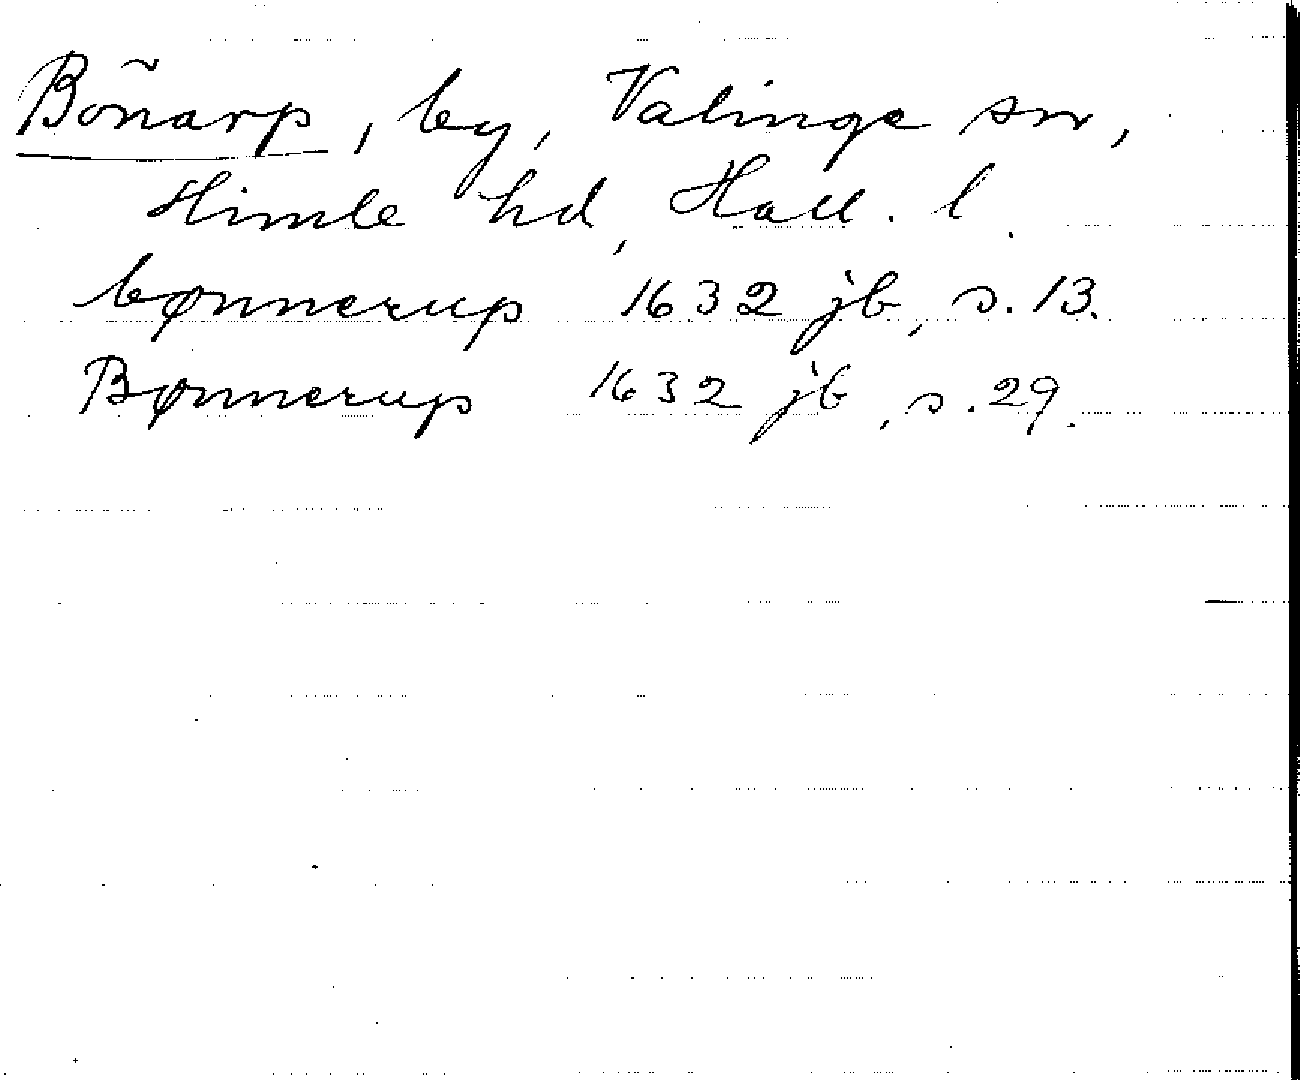 Bönarp, by, Valinge sn,
Himle hd, Hall. l.
bønnerup 1632 jb, s. 13.
Bønnerup 1632 jb, s. 29.